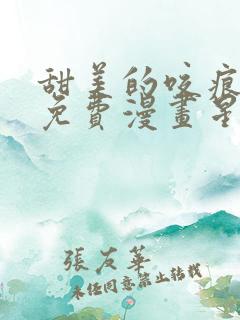 甜美的咬痕
免費漫畫星
張友華
未经同意禁止转载